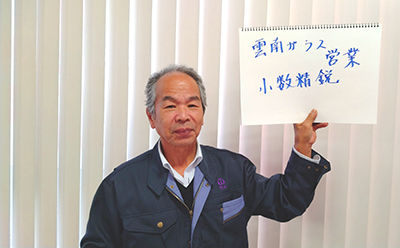 雲南ガラス
営業
小数精鋭